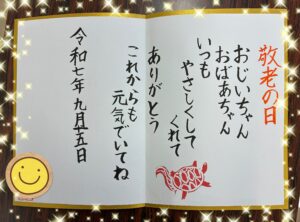 敬老の日
おじいちゃん
おばあちゃん
いつも
やさしくして
くれて
ありがとう
これからも
元気でいてね
令和七年九月十五日